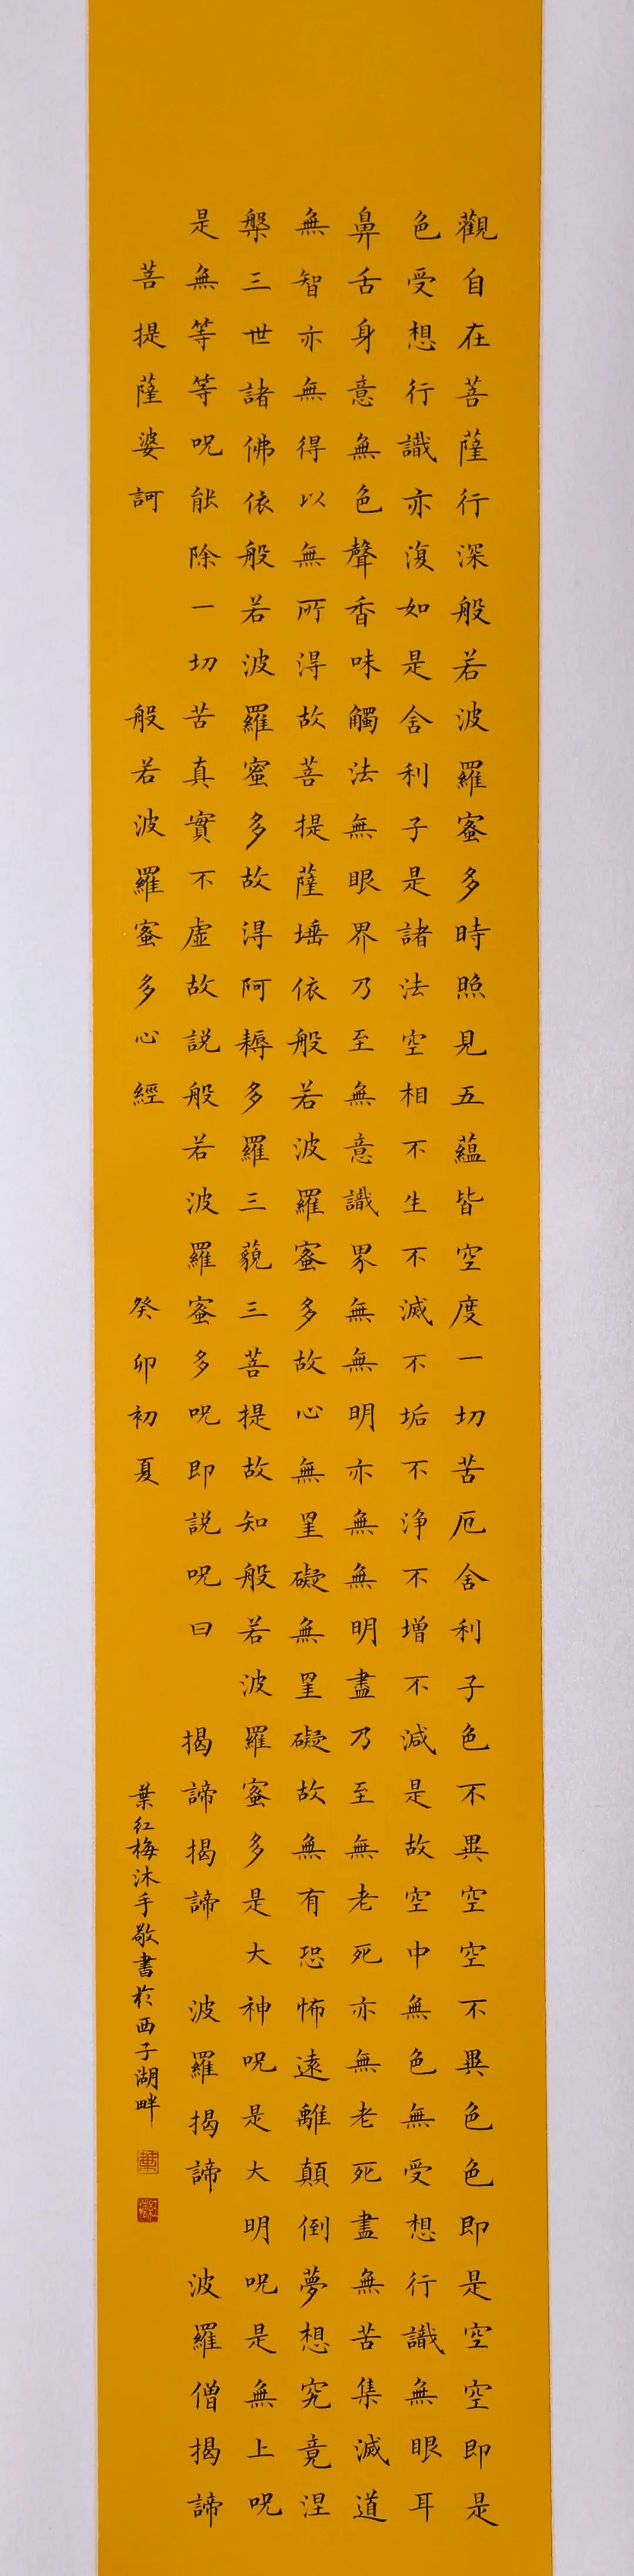 觀自在菩薩行深般若波羅蜜多時照見五蘊皆空度一切苦厄舍利子色不異空空不異色色即是空空即是
色受想行識亦復如是舍利子是諸法空相不生不滅不垢不淨不增不減是故空中無色無受想行識無眼耳
鼻舌身意無色聲香味觸法無眼界乃至無意識界無無明亦無無明盡乃至無老死亦無老死盡無苦集滅道
無智亦無得以無所得故菩提薩埵依般若波羅蜜多故心無罣礙無罣礙故無有恐怖遠離顛倒夢想究竟涅
槃三世諸佛依般若波羅蜜多故得阿耨多羅三藐三菩提故知般若波羅蜜多是大神呪是大明呪是無上呪
是無等等呪能除一切苦真實不虛故説般若波羅蜜多呪即説呪曰 揭諦揭諦 波羅揭諦 波羅僧揭諦
菩提薩婆訶 般若波羅蜜多心經 癸卯初夏 葉紅梅沐手敬書於西子湖畔